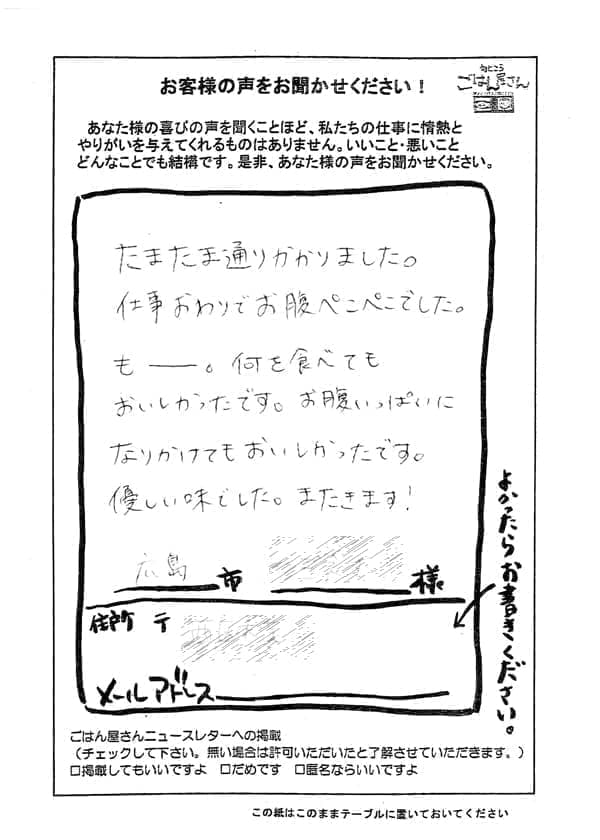 旬どころ
ごはん屋さん
お客様の声をお聞かせください！
あなた様の喜びの声を聞くことほど、私たちの仕事に情熱と
やりがいを与えてくれるものはありません。いいこと・悪いこと
どんなことでも結構です。是非、あなた様の声をお聞かせください。
たまたま通りかかりました。
仕事おわりでお腹ペこペこでした。
も――。何を食べても
おいしかったです。お腹いっぱいに
なりかけてもおいしかったです。
優しい味でした。またきます!
広島市 様
よかったらお書きください。
住所 〒
メールアドレス
ごはん屋さんニュースレターへの掲載
（チェックして下さい。無い場合は許可いただいたと了解させていただきます。）
□掲載してもいいですよ □だめです □匿名ならいいですよ
この紙はこのままテーブルに置いておいてください